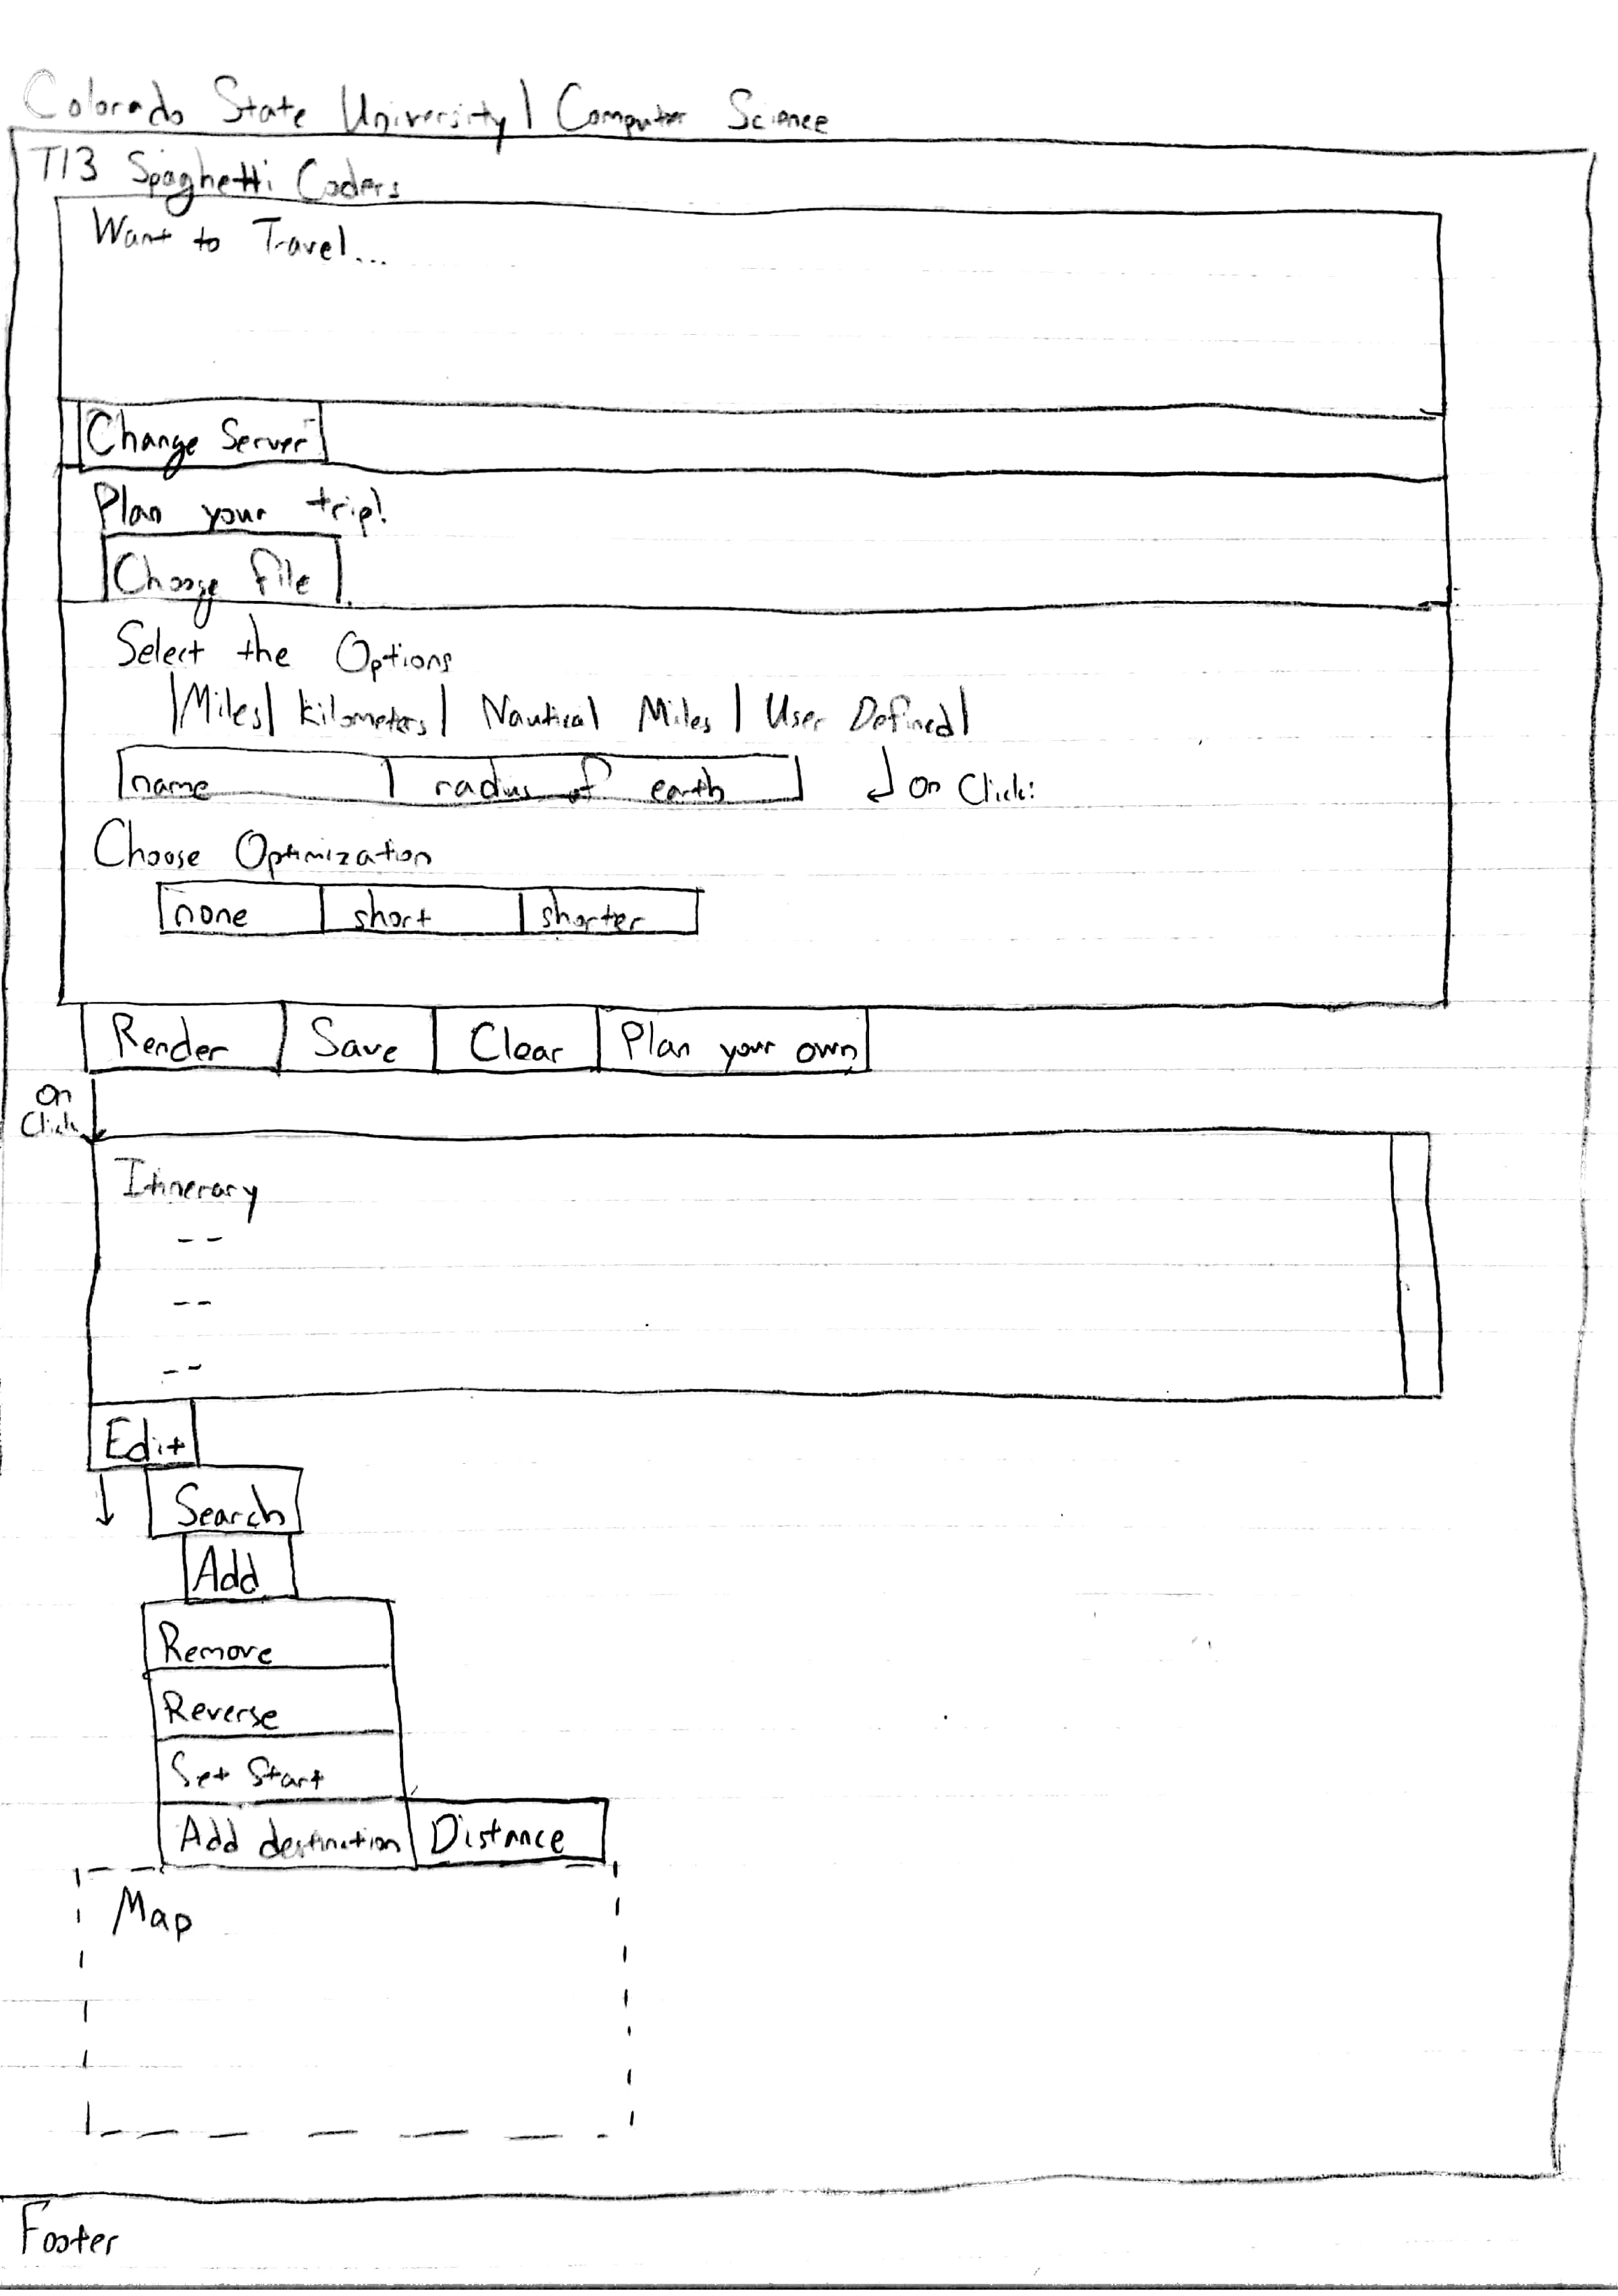 Colorado State University | Computer Science
T13 Spaghetti Coders
Want to Travel...
Change Server
Plan your trip!
Choose File
Select the Options
|Miles| kilometers| Nautical Miles | User Defined|
name radius of earth On Click:
Choose Optimization
none short shorter
Render Save Clear Plan your own
On
Click
Itinerary
--
--
--
Edit
Search
Add
Remove
Reverse
Set Start
Add destination Distance
Map
Footer